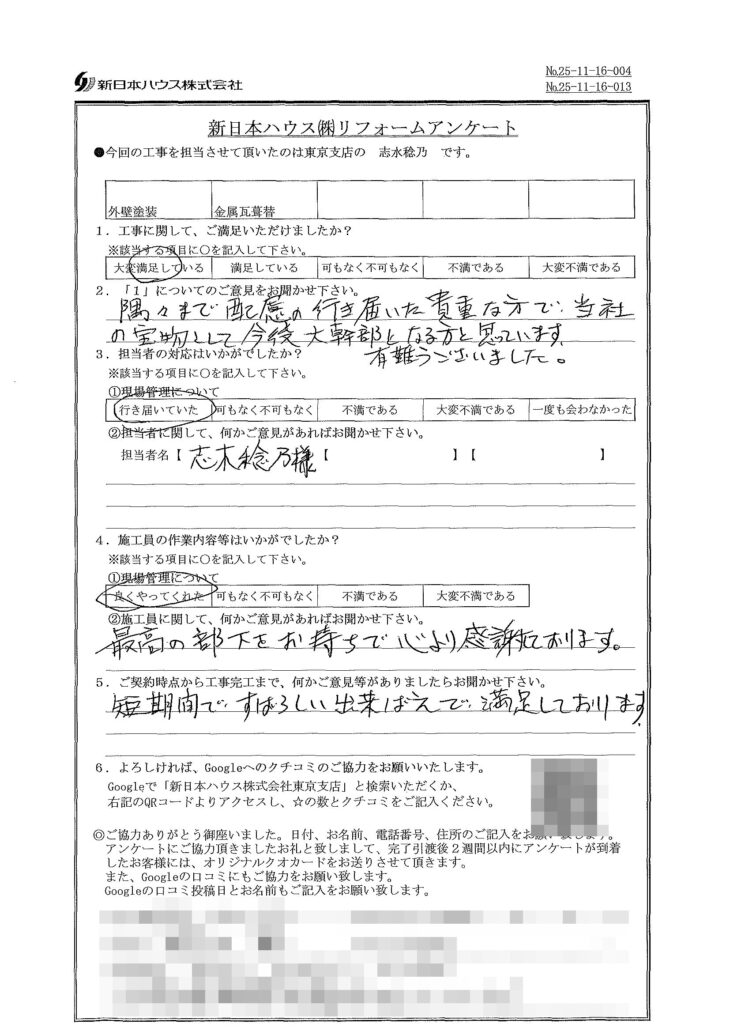 新日本ハウス株式会社
№25-11-16-004
№25-11-16-013
新日本ハウス㈱リフォームアンケート
●今回の工事を担当させて頂いたのは東京支店の 志水稔乃 です。
外壁塗装 金属瓦葺替
1．工事に関して、ご満足いただけましたか？
※該当する項目に○を記入して下さい。
大変満足している 満足している 可もなく不可もなく 不満である 大変不満である
2．「1」についてのご意見をお聞かせ下さい。
隅々まで配慮の行き届いた貴重な方で、当社
の宝物として今後大幹部となる方と思っています。
有難うございました。
3．担当者の対応はいかがでしたか？
※該当する項目に○を記入して下さい。
①現場管理について
行き届いていた 可もなく不可もなく 不満である 大変不満である 一度も会わなかった
②担当者に関して、何かご意見があればお聞かせ下さい。
担当者名【 志木稔乃様 【 】【 】
4．施工員の作業内容等はいかがでしたか？
※該当する項目に○を記入して下さい。
①現場管理について
良くやってくれた 可もなく不可もなく 不満である 大変不満である
②施工員に関して、何かご意見があればお聞かせ下さい。
最高の部下をお持ちで心より感謝しております。
5．ご契約時点から工事完工まで、何かご意見等がありましたらお聞かせ下さい。
短期間で、すばらしい出来ばえで、満足しております
6．よろしければ、Googleへのクチコミのご協力をお願いいたします。
Googleで「新日本ハウス株式会社東京支店」と検索いただくか、
右記のQRコードよりアクセスし、☆の数とクチコミをご記入ください。
◎ご協力ありがとう御座いました。日付、お名前、電話番号、住所のご記入をお願い致します。
アンケートにご協力頂きましたお礼と致しまして、完了引渡後２週間以内にアンケートが到着
したお客様には、オリジナルクオカードをお送りさせて頂きます。
また、Googleの口コミにもご協力をお願い致します。
Googleの口コミ投稿日とお名前もご記入をお願い致します。